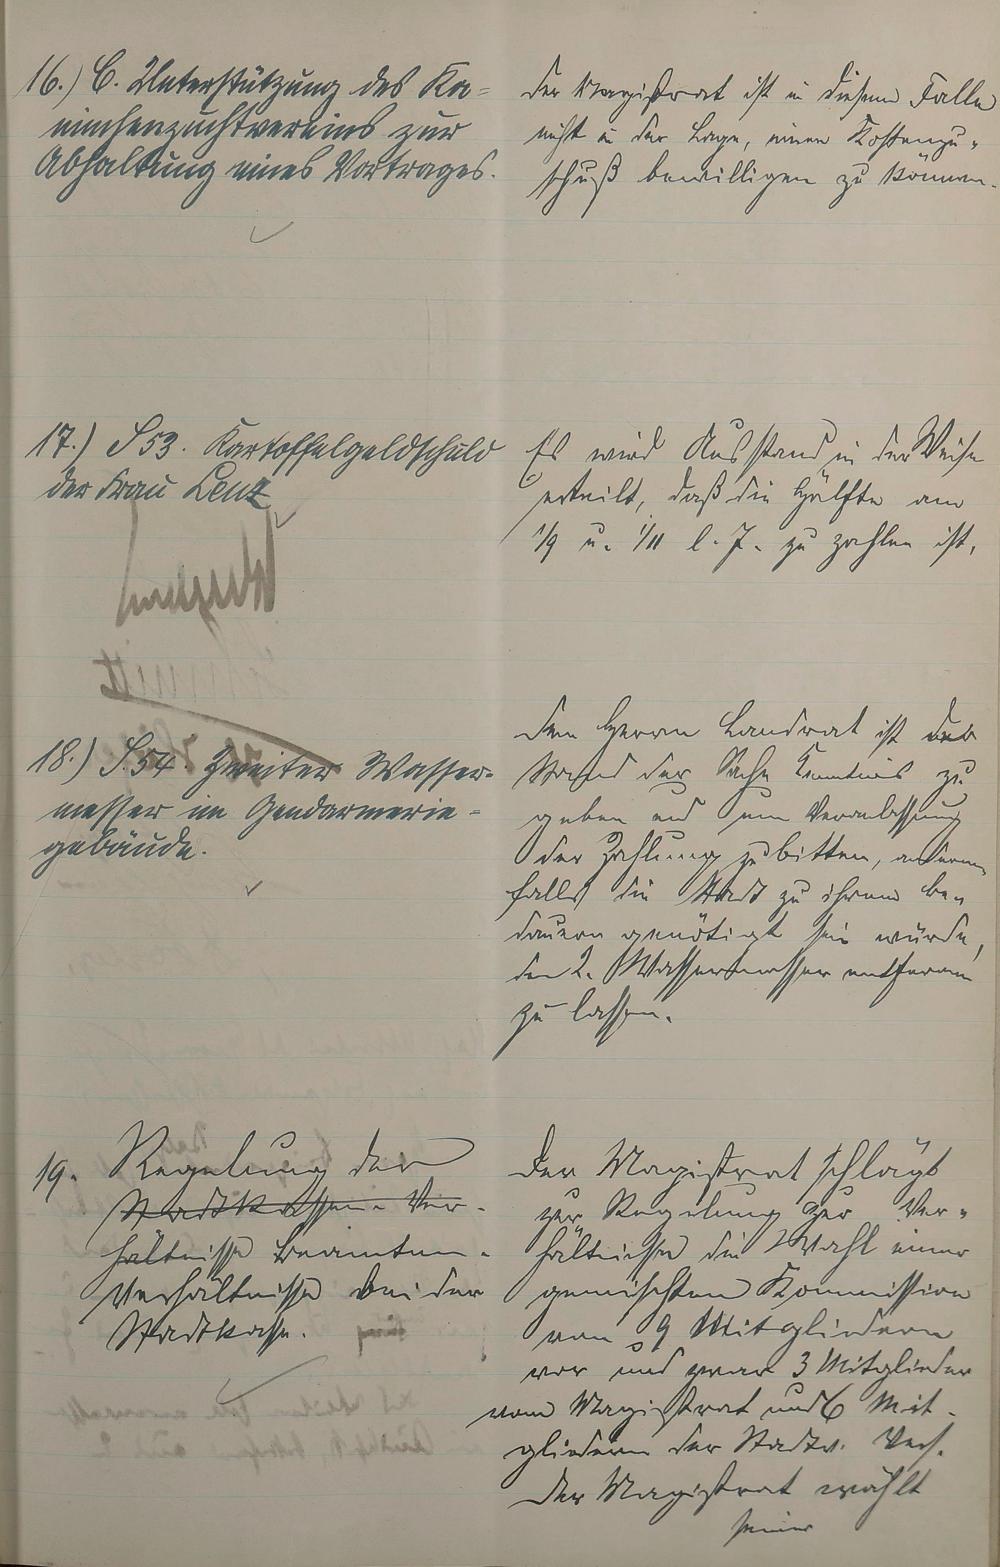 16.) C. Unterstützung des Ka-
ninchenzuchtvereins zur
Abhaltung eines Vortrages.
Der Magistrat ist in diesem Falle
nicht in der Lage, einen Kostenzu-
schuß bewilligen zu können.
17.) S 53. Kartoffelgeldschuld
der Frau Lenz
Es wird Ausstand in der Weise
erteilt, daß die Hälfte am
1/9 u. 1/11 l. J. zu zahlen ist.
18.) S. 54 Zweiter Wasser-
messer im Gendarmerie-
gebäude.
Dem Herrn Landrat ist der
Stand der Sache Kenntnis zu
geben und um Veranlassung
der Zahlung zu bitten, andern-
falls die Stadt zu ihrem be-
dauern genötigt sein würde,
den 2. Wassermesser entfernen
zu lassen.
19. Regelung der
Stadtkassen-Ver-
hältnisse Beamten-
Verhältnisse bei der
Stadtkasse.
Der Magistrat schlägt
zur Regelung der Ver-
hältnisse die Wahl einer
gemischten Kommission
von 9 Mitgliedern
vor und zwar 3 Mitglieder
vom Magistrat und 6 Mit-
gliedern der Stadtv. Vers.
Der Magistrat wählt
seiner